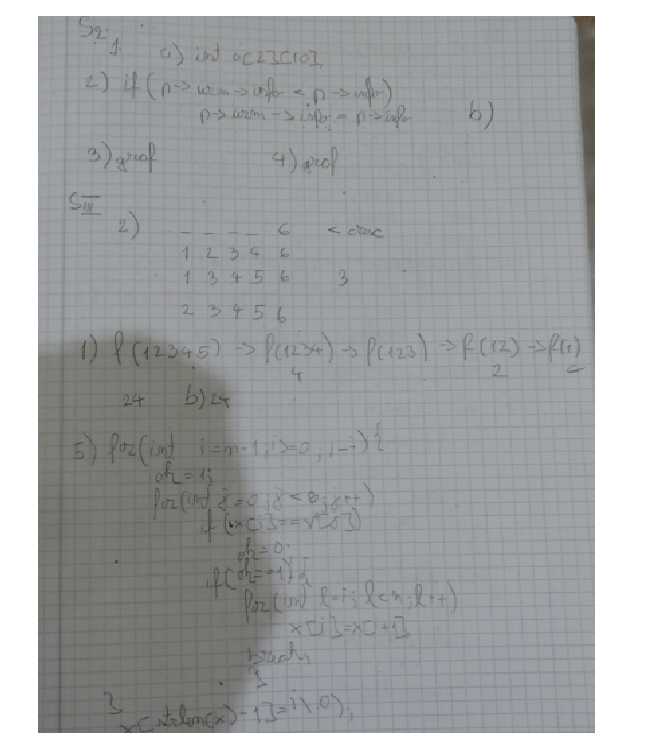 S2.
1. a) int a[2][10];
2) if (p->urm->info < p->info)
p->urm->info = p->info b)
3) graf 4) graf
SIII
2) _ _ _ _ 6
1 2 3 4 6
1 3 4 5 6 3
2 3 4 5 6
1) f(12345) -> f(1234) -> f(123) -> f(12) -> f(1)
4 2
24 b) 24
5) for(int i=n-1; i>=0; i--) {
ok=1;
for(int j=0; j<
if (x[i]==v[j])
ok=0;
if(ok==1) {
for(int l=i; l<n; l++)
x[i]=x[ +1]
break;
}
}
x[strlen(x)-1]=